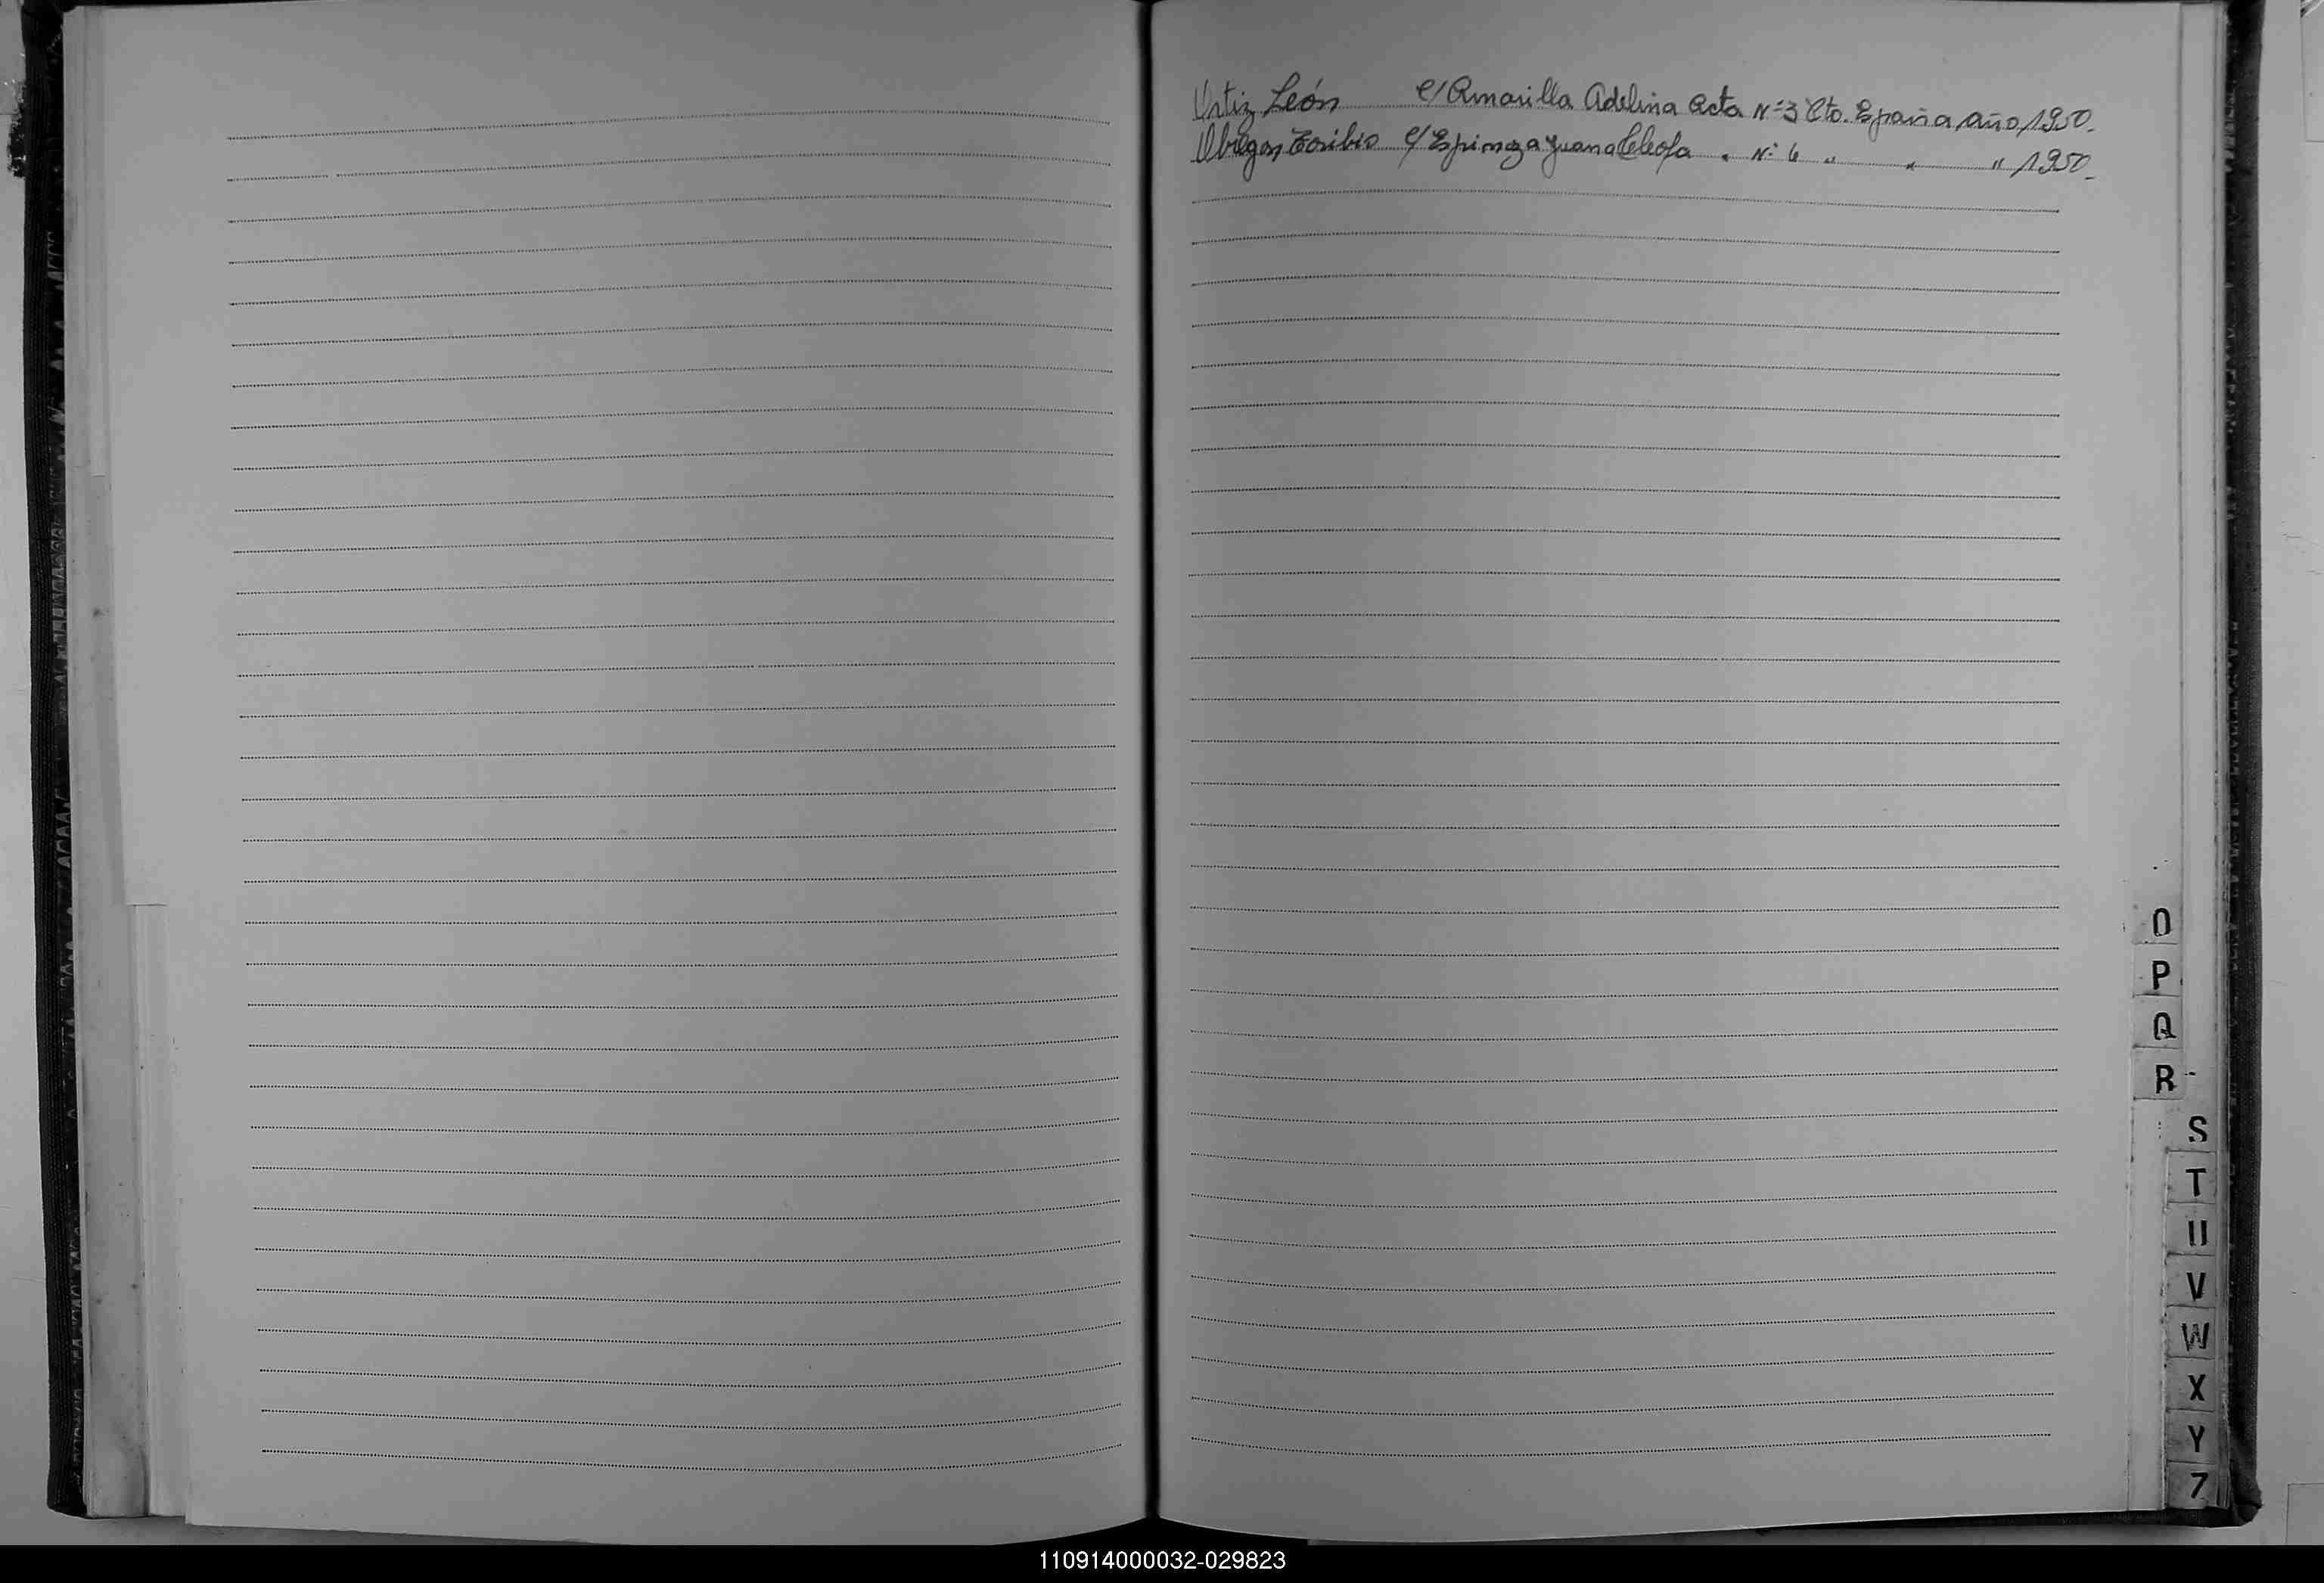 Ortiz León c/ Amarilla Adelina Acta Nº 3 Cto. España, año, 1950.
Obregon Toribio c/ Espinoza Juana Cleofa " Nº 6 " " " 1950.
O
P
Q
R
S
T
U
V
W
X
Y
Z
110914000032-029823